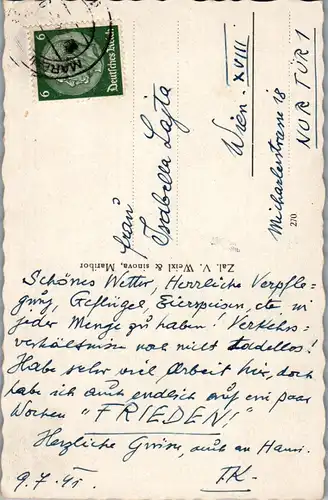 6 Deutsches Reich 6
MARB
Frau
Isabella Lajta
Wien. XVIII
Michaelerstrasse 18
NUR TÜR 1
270
Zal. V. Weixl & sinova, Maribor
Schönes Wetter, Herrliche Verpfle-
gung, Geflügel Eierspeisen, etc in
jeder Menge zu haben! Verkehrs-
verhältnisse noch nicht tadellos!
Habe sehr viel Arbeit hier, doch
habe ich auch endlich auf ein paar
Wochen "FRIEDEN!"
Herzliche Grüsse, auch an Hansi.
9.7.41. FK-